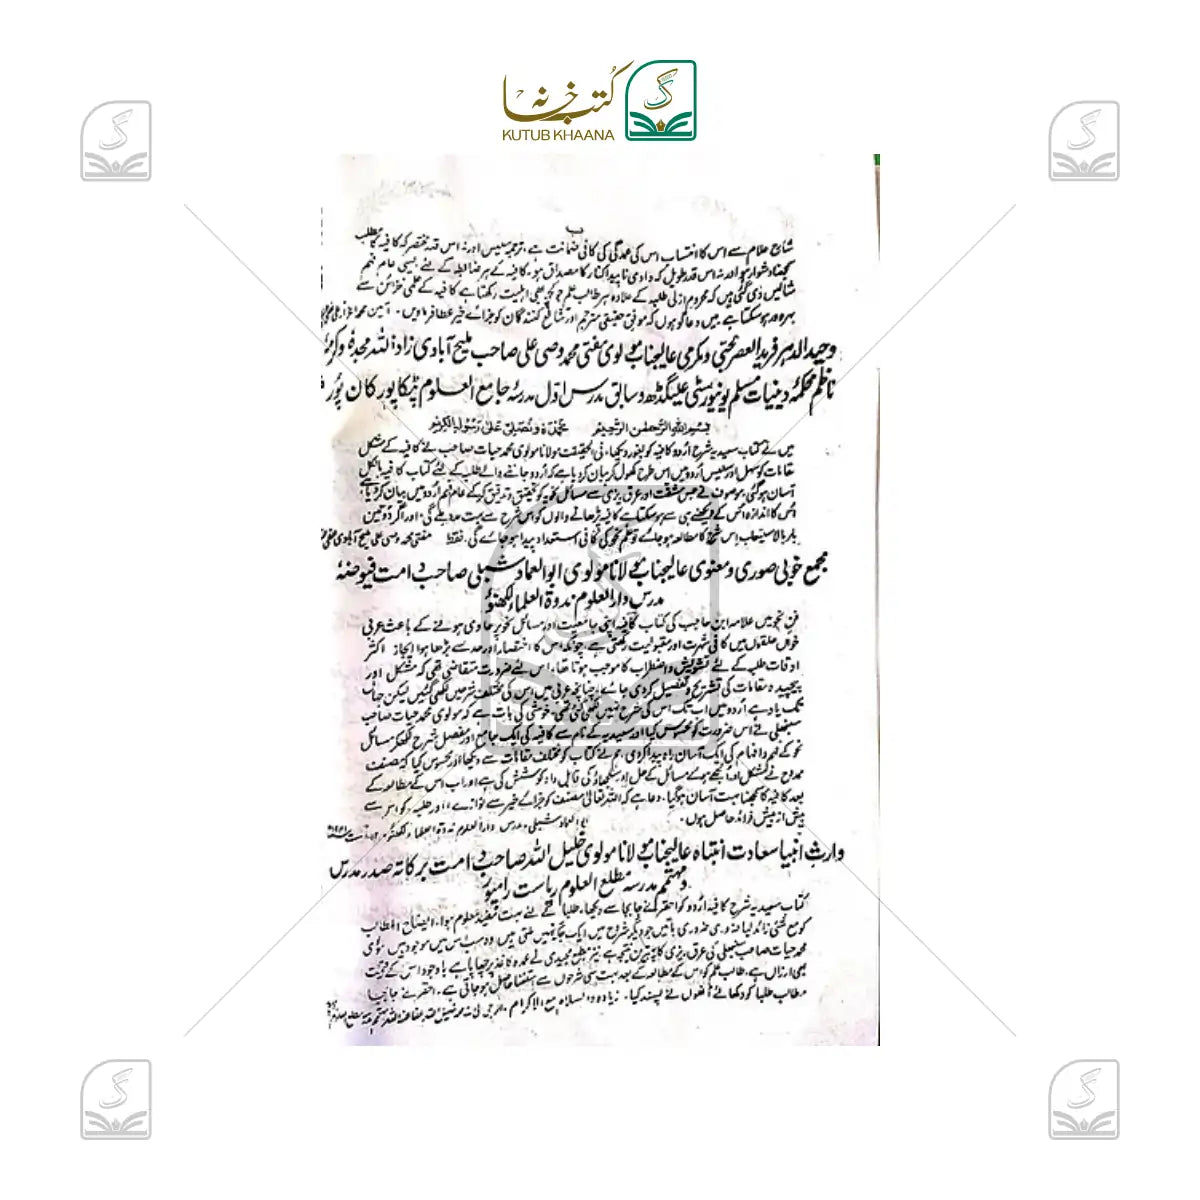 کتب خانہ
KUTUB KHAANA
ب
شارح علام سے اس کا انتساب اس کی عمدگی کی کافی ضمانت ہے، ترجمہ سلیس اور نہ اس قدر مختصر کہ کافیہ کا مطلب
سمجھنا دشوار ہو اور نہ اس قدر طویل کہ وادی ناپیدا کنار کا مصداق ہو۔ کافیہ کے ہر ضابطہ کے لئے ایسی عام فہم
مثالیں دی گئی ہیں کہ محروم ازلی طلبہ کے علاوہ ہر طالب علم جو کچھ بھی اہلیت رکھتا ہے کافیہ کے علمی خزائن سے
بہرہ ور ہو سکتا ہے۔ میں دعا گو ہوں کہ موفق حقیقی مترجم اور شائع کنندگان کو جزائے خیر عطا فرماویں۔ آمین محمد اعزاز علی
وحید الدہر فرید العصر مجتبیٰ و مکرمی عالیجناب مولوی مفتی محمد وصی علی صاحب ملیح آبادی زاد اللہ مجدہٗ وکرمہٗ
ناظم محکمۂ دینیات مسلم یونیورسٹی علیگڑھ و سابق مدرس اول مدرسۂ جامع العلوم پٹکاپور کان پور
بسم اللہ الرحمٰن الرحیم نحمدہ ونصلی علی رسولہ الکریم
میں نے کتاب سعیدیہ شرح اردو کافیہ کو بغور دیکھا، فی الحقیقت مولانا مولوی محمد حیات صاحب نے کافیہ کے مشکل
مقامات کو سہل اور سلیس اردو میں اس طرح کھول کر بیان کر دیا ہے کہ اردو جاننے والے طلبہ کے لئے کتاب کافیہ بالکل
آسان ہو گئی، موصوف نے جس مشقت اور عرق ریزی سے مسائل نحویہ کو تحقیق و تدقیق کر کے عام فہم اردو میں بیان کر دیا ہے
اُس کا اندازہ اس کے دیکھنے ہی سے ہو سکتا ہے کافیہ پڑھانے والوں کو اس شرح سے بہت مدد ملے گی اور اگر دو تین
بار بالاستیعاب اس شرح کا مطالعہ ہو جائے تو علم نحو کی کافی استعداد پیدا ہو جائے گی۔ فقط مفتی محمد وصی علی ملیح آبادی
مجمع خوبی صوری و معنوی عالیجناب مولانا مولوی ابو العماد شبلی صاحب دامت فیوضہٗ
مدرس دارالعلوم ندوۃ العلماء لکھنؤ
فن نحو میں علامہ ابن حاجب کی کتاب کافیہ اپنی جامعیت اور مسائل نحو پر حاوی ہونے کے باعث عربی
خواں حلقوں میں کافی شہرت اور مقبولیت رکھتی ہے، چونکہ اس کا اختصار اور حد سے بڑھا ہوا ایجاز اکثر
اوقات طلبہ کے لئے تشویش و اضطراب کا موجب ہوتا تھا، اس لئے ضرورت متقاضی تھی کہ مشکل اور
پیچیدہ مقامات کی تشریح و تفصیل کر دی جائے، چنانچہ عربی میں اس کی مختلف شرحیں لکھی گئیں لیکن جہاں
تک یاد ہے اردو میں اب تک اس کی شرح نہیں لکھی گئی تھی، خوشی کی بات ہے کہ مولوی محمد حیات صاحب
سنبھلی نے اس ضرورت کو محسوس کیا اور سعیدیہ کے نام سے کافیہ کی ایک جامع اور مفصل شرح لکھ کر مسائل
نحو کے فہم و افہام کی ایک آسان راہ پیدا کر دی، ہم نے کتاب کو مختلف مقامات سے دیکھا اور محسوس کیا کہ مصنف
ممدوح نے مشکل اور الجھے ہوئے مسائل کے حل اور سلجھاؤ کی قابل داد کوشش کی ہے اور اب اس کے مطالعہ کے
بعد کافیہ کا سمجھنا بہت آسان ہو گیا۔ دعا ہے کہ اللہ تعالیٰ مصنف کو جزائے خیر سے نوازے اور طلبہ کو اس سے
بیش از بیش فوائد حاصل ہوں۔
ابو العماد شبلی۔ مدرس دارالعلوم ندوۃ العلماء لکھنؤ
وارث انبیا سعادت انتباہ عالیجناب مولانا مولوی خلیل اللہ صاحب دامت برکاتہ صدر مدرس
و مہتمم مدرسہ مطلع العلوم ریاست رامپور
کتاب سعیدیہ شرح کافیہ اردو کو احقر نے جابجا سے دیکھا، طلبا کے لئے بہت مفید معلوم ہوا۔ ایضاح المطالب
کو مع محشی زائد لیا، ضروری ضروری باتیں جو دیگر شراح میں ایک جا نہیں ملتی ہیں وہ سب اس میں موجود ہیں مولوی
محمد حیات صاحب سنبھلی کی عرق ریزی کا بہترین نتیجہ ہے نیز مطبع مجیدی نے عمدہ کاغذ پر چھاپا ہے باوجود اس کے قیمت
بھی ارزاں ہے۔ طالب علم کو اس کے مطالعہ کے بعد بہت سی شرحوں سے استغنا حاصل ہو جاتی ہے۔ احقر نے جابجا
مطالب طلبا کو دکھائے انھوں نے پسند کیا۔ زیادہ والسلام مع الاکرام۔